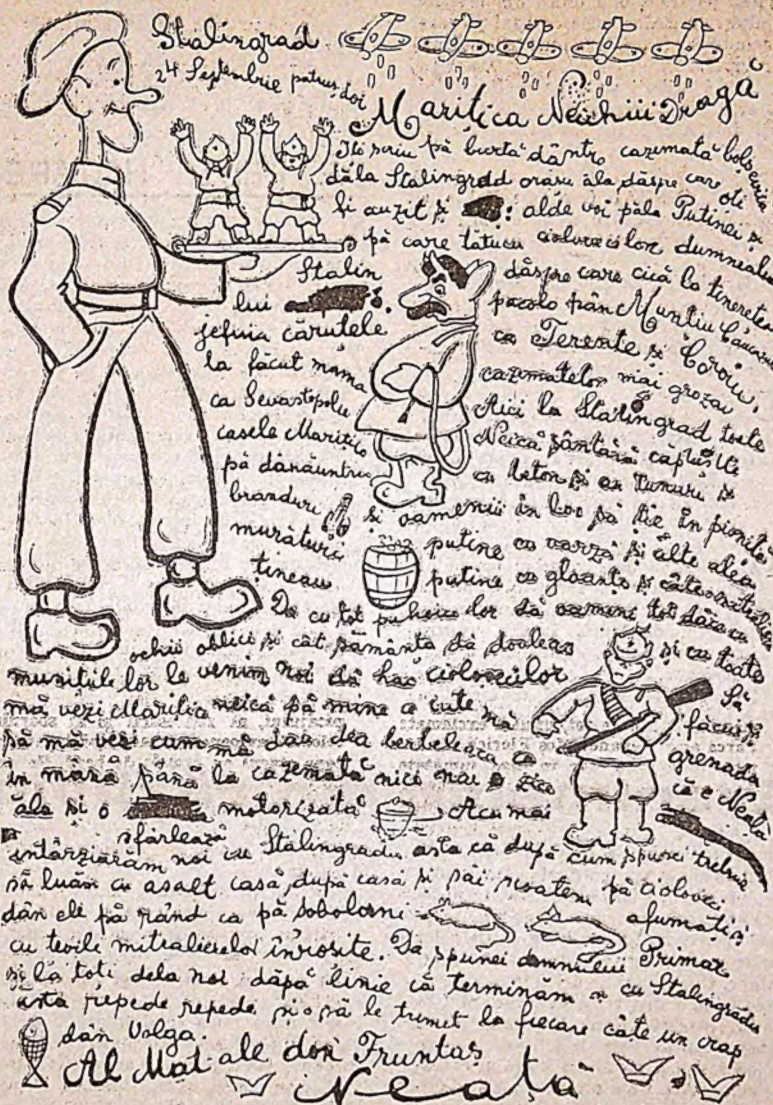 Stalingrad
24 Septembrie patruș doi
Marițica Neichii Dragă
Îți scriu pă burtă dântro cazemată bolșevică
dăla Stalingrad orașu ăla dăspre care oți
fi auzit și alde voi păla Putinei și
pă care tătucu ciolovecilor dumnealui
Stalin dăspre care cică la tinerețea
lui pacolo prân Munțiu Caucazu
jefuia căruțele ca Terente și Coroiu,
la făcut mama cazematelor mai grozav
ca Sevastopolu Aici la Stalingrad toate
casele Marițico Neică sântără căptușite
pă dânăuntru cu beton și cu tunuri și
branduri și oamenii în loc să ție în pivniță
murături putine cu varză și alte alea
țineau putine cu gloanțe și câte o mitralieră
Da cu tot puhoiu lor dă oameni tot dăia cu
ochii oblici și cât pământu dă și cu toate
munițiile lor le venim noi dă hac ciolovecilor Să
mă vezi Marițico neică pă mine ce iute mă făcui și
să mă vezi cum mă dau dea berbeleacu cu grenada
în mână până la cazemată nici nai zice că e Neață
ăla și o motorizată Acu mai
sfârlează
întârziarăm noi cu Stalingradu asta că după cum spusei trebuie
să luăm cu asalt casă după casă și săi scoatem pă cioloveci
dân ele pă rând ca pă șobolani afumați
cu țevile mitralierelor înroșite. Da spunei domnului Primar
și la toți dela noi dăpă linie că terminăm și cu Stalingradu
ăsta repede repede și o să le trimet la fiecare câte un crap
dân Volga.
Al Mat ale don Fruntaș
Neață